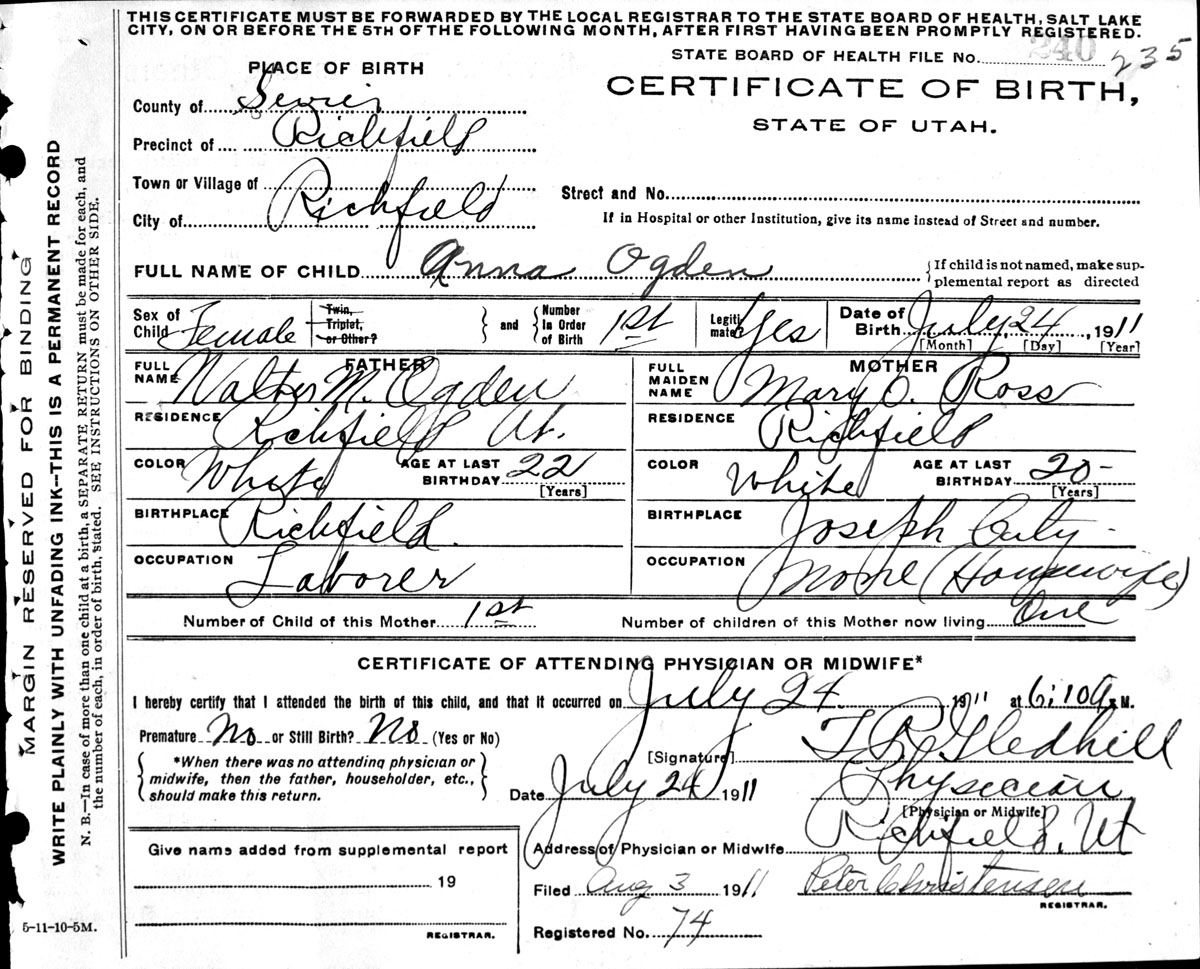 THIS CERTIFICATE MUST BE FORWARDED BY THE LOCAL REGISTRAR TO THE STATE BOARD OF HEALTH, SALT LAKE
CITY, ON OR BEFORE THE 5TH OF THE FOLLOWING MONTH, AFTER FIRST HAVING BEEN PROMPTLY REGISTERED.
STATE BOARD OF HEALTH FILE NO. 240 235
PLACE OF BIRTH
CERTIFICATE OF BIRTH,
STATE OF UTAH.
County of Sevier
Precinct of Richfield
Town or Village of
Street and No.
City of Richfield
If in Hospital or other Institution, give its name instead of Street and number.
FULL NAME OF CHILD Anna Ogden
If child is not named, make sup-
plemental report as directed
Sex of Child Female
Twin, Triplet, or Other?
and
Number In Order of Birth 1st
Legiti mate? Yes
Date of Birth July 24, 1911
[Month] [Day] [Year]
FATHER
FULL NAME Walter M. Ogden
MOTHER
FULL MAIDEN NAME Mary O. Ross
RESIDENCE Richfield Ut.
RESIDENCE Richfield
COLOR White AGE AT LAST BIRTHDAY 22 [Years]
COLOR White AGE AT LAST BIRTHDAY 20- [Years]
BIRTHPLACE Richfield.
BIRTHPLACE Joseph City
OCCUPATION Laborer
OCCUPATION None (Housewife)
Number of Child of this Mother 1st
Number of children of this Mother now living One
CERTIFICATE OF ATTENDING PHYSICIAN OR MIDWIFE*
I hereby certify that I attended the birth of this child, and that it occurred on July 24 1911 at 6:10 A. M.
Premature No or Still Birth? No (Yes or No)
*When there was no attending physician or
midwife, then the father, householder, etc.,
should make this return.
[Signature] T. R. Gledhill
Date July 24 1911
Physician
[Physician or Midwife]
Address of Physician or Midwife Richfield, Ut
Give name added from supplemental report
19
REGISTRAR.
Filed Aug 3 1911 Peter Christensen
REGISTRAR.
Registered No. 74
MARGIN RESERVED FOR BINDING
WRITE PLAINLY WITH UNFADING INK—THIS IS A PERMANENT RECORD
N. B.—In case of more than one child at a birth, a SEPARATE RETURN must be made for each, and
the number of each, in order of birth, stated. SEE INSTRUCTIONS ON OTHER SIDE.
5-11-10-5M.